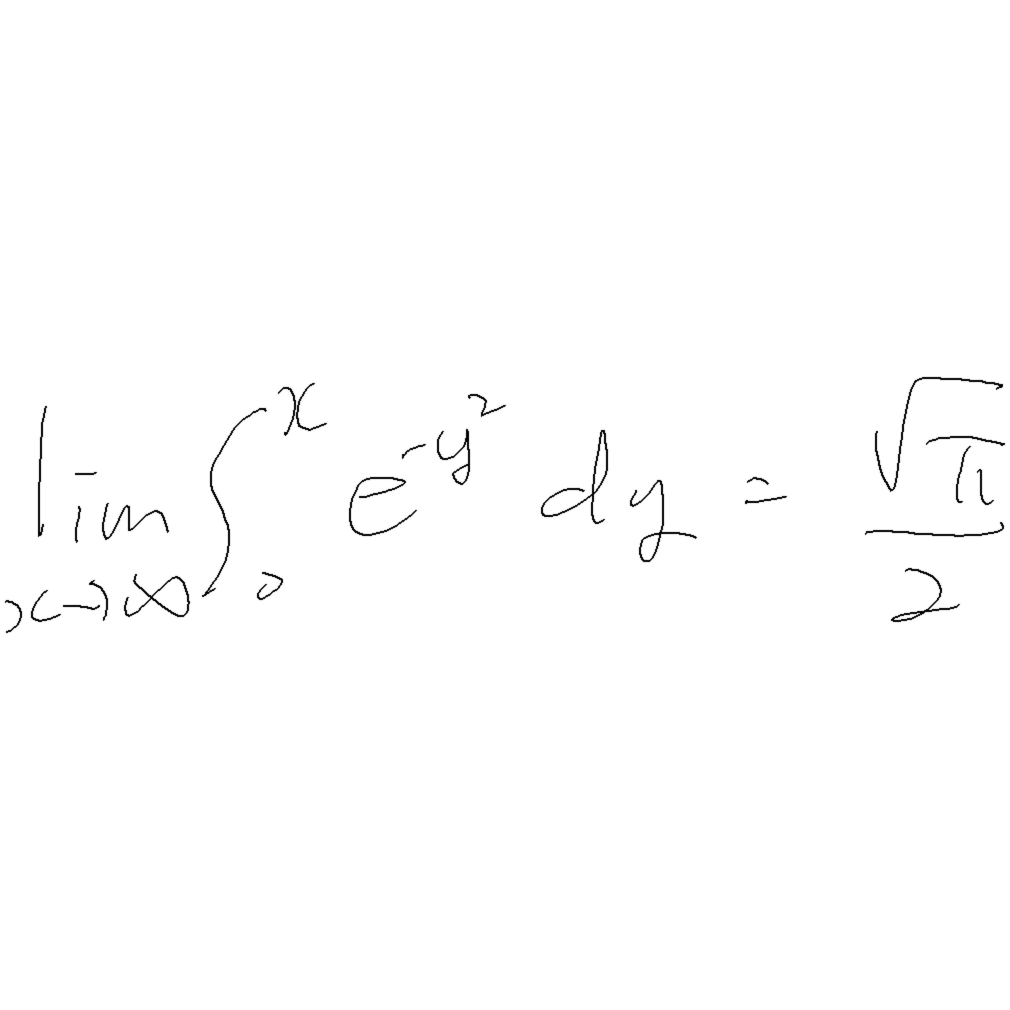 \lim_{x \to \infty} \int_0^x e^{-y^2} dy = \frac{\sqrt{\pi}}{2}